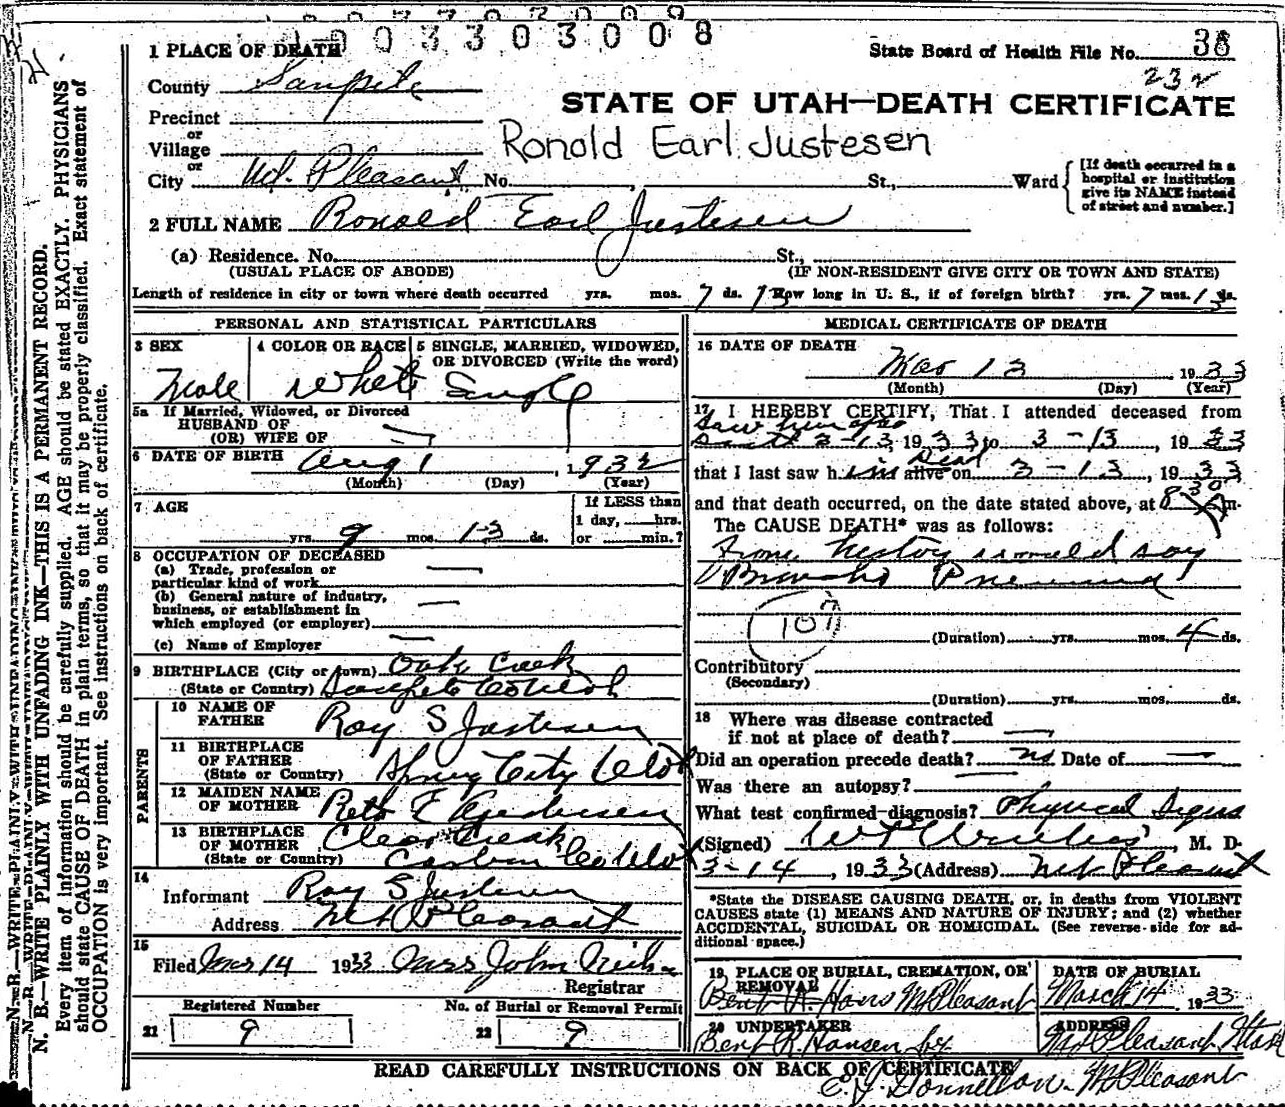 0033030008
1 PLACE OF DEATH
State Board of Health File No. 38
232
County Sanpete
STATE OF UTAH—DEATH CERTIFICATE
Precinct
or
Village
Ronald Earl Justesen
or
City Mt. Pleasant, No. , St., Ward
[If death occurred in a hospital or institution give its NAME instead of street and number.]
2 FULL NAME Ronald Earl Justesen
(a) Residence. No. St.,
(USUAL PLACE OF ABODE) (IF NON-RESIDENT GIVE CITY OR TOWN AND STATE)
Length of residence in city or town where death occurred yrs. mos. 7 ds. 13 How long in U. S., if of foreign birth? yrs. 7 mos. 13 ds.
PERSONAL AND STATISTICAL PARTICULARS
3 SEX 4 COLOR OR RACE 5 SINGLE, MARRIED, WIDOWED, OR DIVORCED (Write the word)
Male White Single
5a If Married, Widowed, or Divorced
HUSBAND OF
(OR) WIFE OF
6 DATE OF BIRTH Aug 1, 1932
(Month) (Day) (Year)
7 AGE
If LESS than
1 day, hrs.
or min.?
yrs. 9 mos. 13 ds.
8 OCCUPATION OF DECEASED
(a) Trade, profession or
particular kind of work
(b) General nature of industry,
business, or establishment in
which employed (or employer)
(c) Name of Employer
9 BIRTHPLACE (City or town) Oak Creek
(State or Country) Sanpete Co Utah
PARENTS
10 NAME OF FATHER Roy S Justesen
11 BIRTHPLACE OF FATHER (State or Country) Spring City Utah
12 MAIDEN NAME OF MOTHER
13 BIRTHPLACE OF MOTHER (State or Country) Clear Creek
Carbon Co Utah
14
Informant Roy S Justesen
Address Mt Pleasant
15
Filed Mar 14 1933 Mrs John
Registrar
Registered Number No. of Burial or Removal Permit
21 9 22 9
MEDICAL CERTIFICATE OF DEATH
16 DATE OF DEATH
Mar 13 1933
(Month) (Day) (Year)
17 I HEREBY CERTIFY, That I attended deceased from
Saw him after
death 3-13, 1933 to 3-13, 1933
that I last saw him alive Dead on 3-13, 1933
and that death occurred, on the date stated above, at 8 30 m.
The CAUSE DEATH* was as follows:
From history would say
Broncho Pneumonia
107
(Duration) yrs. mos. 4 ds.
Contributory
(Secondary)
(Duration) yrs. mos. ds.
18 Where was disease contracted
if not at place of death?
Did an operation precede death? no Date of
Was there an autopsy?
What test confirmed diagnosis? Physical Signs
(Signed) , M. D.
3-14, 1933 (Address) Mt Pleasant
*State the DISEASE CAUSING DEATH, or, in deaths from VIOLENT
CAUSES state (1) MEANS AND NATURE OF INJURY; and (2) whether
ACCIDENTAL, SUICIDAL OR HOMICIDAL. (See reverse side for ad-
ditional space.)
19 PLACE OF BURIAL, CREMATION, OR REMOVAL DATE OF BURIAL
Mt Pleasant March 14 1933
20 UNDERTAKER ADDRESS
Bent R. Hansen by Mt Pleasant Utah
READ CAREFULLY INSTRUCTIONS ON BACK OF CERTIFICATE
C. J. Donnellon - Mt Pleasant
N. B.—WRITE PLAINLY WITH UNFADING INK—THIS IS A PERMANENT RECORD.
Every item of information should be carefully supplied. AGE should be stated EXACTLY. PHYSICIANS
should state CAUSE OF DEATH in plain terms, so that it may be properly classified. Exact statement of
OCCUPATION is very important. See instructions on back of certificate.